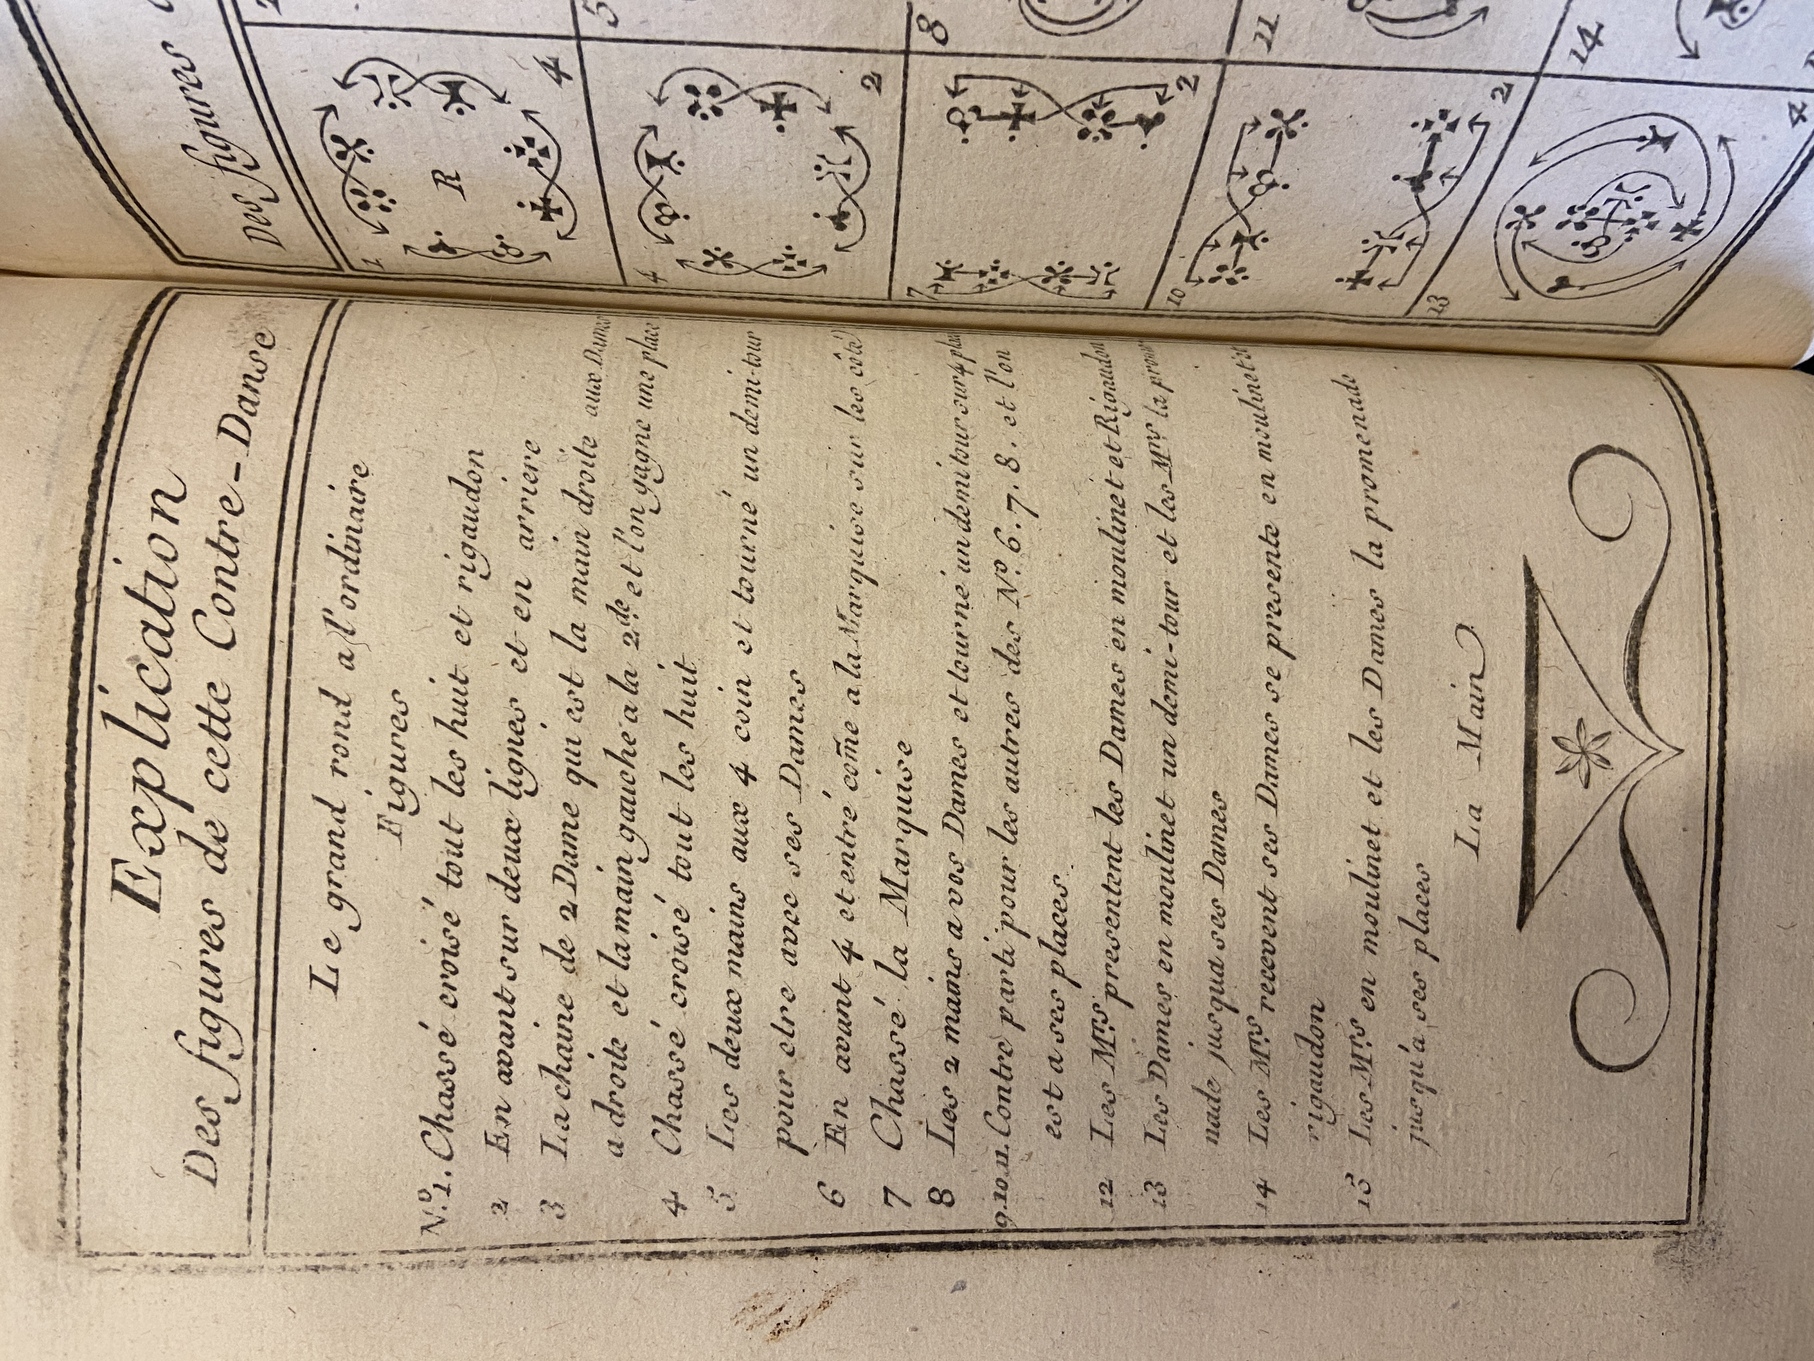 Explication
Des figures de cette Contre-Danse
Le grand rond a l'ordinaire
Figures
N.º 1. Chassé croisé tout les huit et rigaudon
2 En avant sur deux lignes et en arriere
3 La chaine de 2 Dame qui est la main droite aux Dames
a droite et la main gauche a la 2.de et l'on gagne une place
4 Chassé croisé tout les huit
5 Les deux mains aux 4 coin et tourné un demi-tour
pour etre avec ses Dames
6 En avant 4 et entré com̃e a la Marquise sur les côté
7 Chassé la Marquise
8 Les 2 mains a vos Dames et tourné un demi tour sur 4 pla
9.10.11. Contre partà pour les autres des N.º 6. 7. 8. et l'on
est a ses places
12 Les M.rs presentent les Dames en moulinet et Rigaudon
13 Les Dames en moulinet un demi-tour et les M.rs la prome
nade jusqua ses Dames
14 Les M.rs recevent ses Dames se presente en moulinet et
rigaudon
15 Les M.rs en moulinet et les Dames la promenade
jusqu'a ses places
La Main
Des figures
1
R
4
4
2
7
2
10
2
13
4
2
5
8
11
14